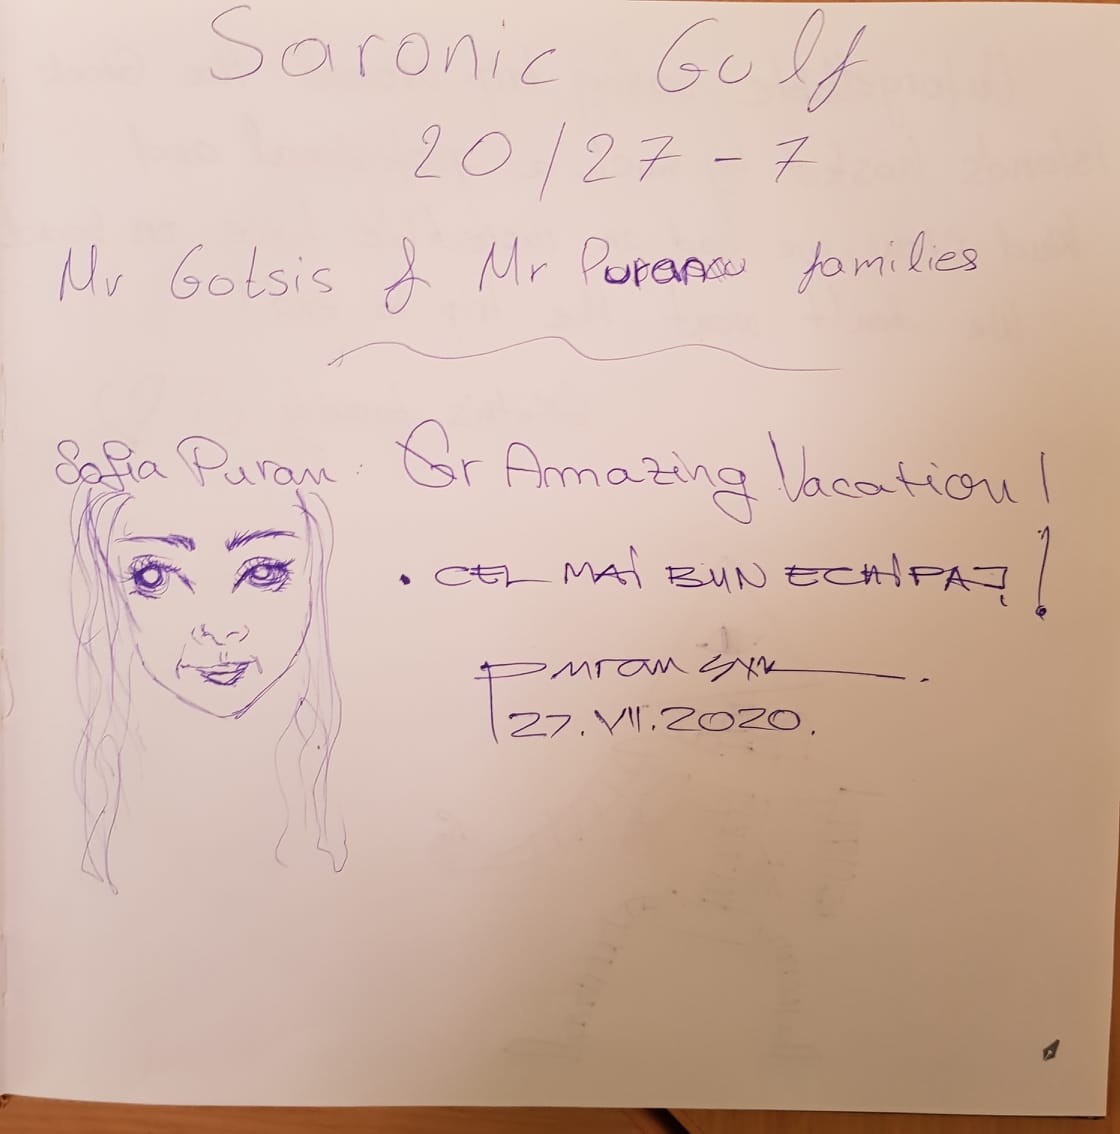 Saronic Golf
20/27-7
Mr Gotsis & Mr Puranu families
Sofia Puran: Gr Amazing Vacation!
• CEL MAI BUN ECHIPAJ!
puran
27.VII.2020.